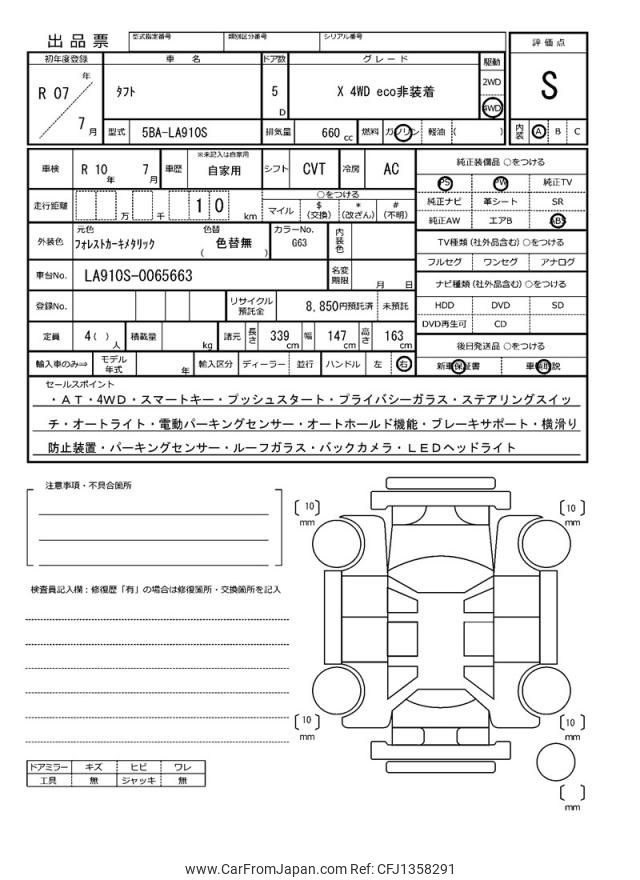 出品票 型式指定番号 類別区分番号 シリアル番号
評価点
初年度登録 車名 ドア数 グレード 駆動
R 07 年 タフト 5 D X 4WD eco非装着 2WD 4WD S
7 月 型式 5BA-LA910S 排気量 660 cc 燃料 ガソリン 軽油 ( ) 内装 A B C
車検 R 10 年 7 月 車歴 ※未記入は自家用 自家用 シフト CVT 冷房 AC 純正装備品 ○をつける
PS PW 純正TV
走行距離 万 千 1 0 km ○をつける
マイル $ (交換) * (改ざん) # (不明)
純正ナビ 革シート SR
純正AW エアB ABS
外装色 元色 フォレストカーキメタリック 色替 ( 色替無 ) カラーNo. G63 内装色
TV種類 (社外品含む) ○をつける
フルセグ ワンセグ アナログ
車台No. LA910S-0065663 名変期限 月 日
ナビ種類 (社外品含む) ○をつける
登録No. リサイクル預託金 8,850円預託済 未預託 HDD DVD SD
DVD再生可 CD
定員 4( ) 人 積載量 kg 諸元 長さ 339 cm 幅 147 cm 高さ 163 cm
後日発送品 ○をつける
輸入車のみ⇒ モデル年式 年 輸入区分 ディーラー 並行 ハンドル 左 右 新車保証書 車輌取説
セールスポイント
・ＡＴ・４ＷＤ・スマートキー・プッシュスタート・プライバシーガラス・ステアリングスイッ
チ・オートライト・電動パーキングセンサー・オートホールド機能・ブレーキサポート・横滑り
防止装置・パーキングセンサー・ルーフガラス・バックカメラ・ＬＥＤヘッドライト
注意事項・不具合箇所
〔 10 〕 mm
〔 10 〕 mm
検査員記入欄：修復歴「有」の場合は修復箇所・交換箇所を記入
〔 10 〕 mm
〔 10 〕 mm
ドアミラー キズ ヒビ ワレ
工具 無 ジャッキ 無
〔 〕 mm
www.CarFromJapan.com Ref: CFJ1358291